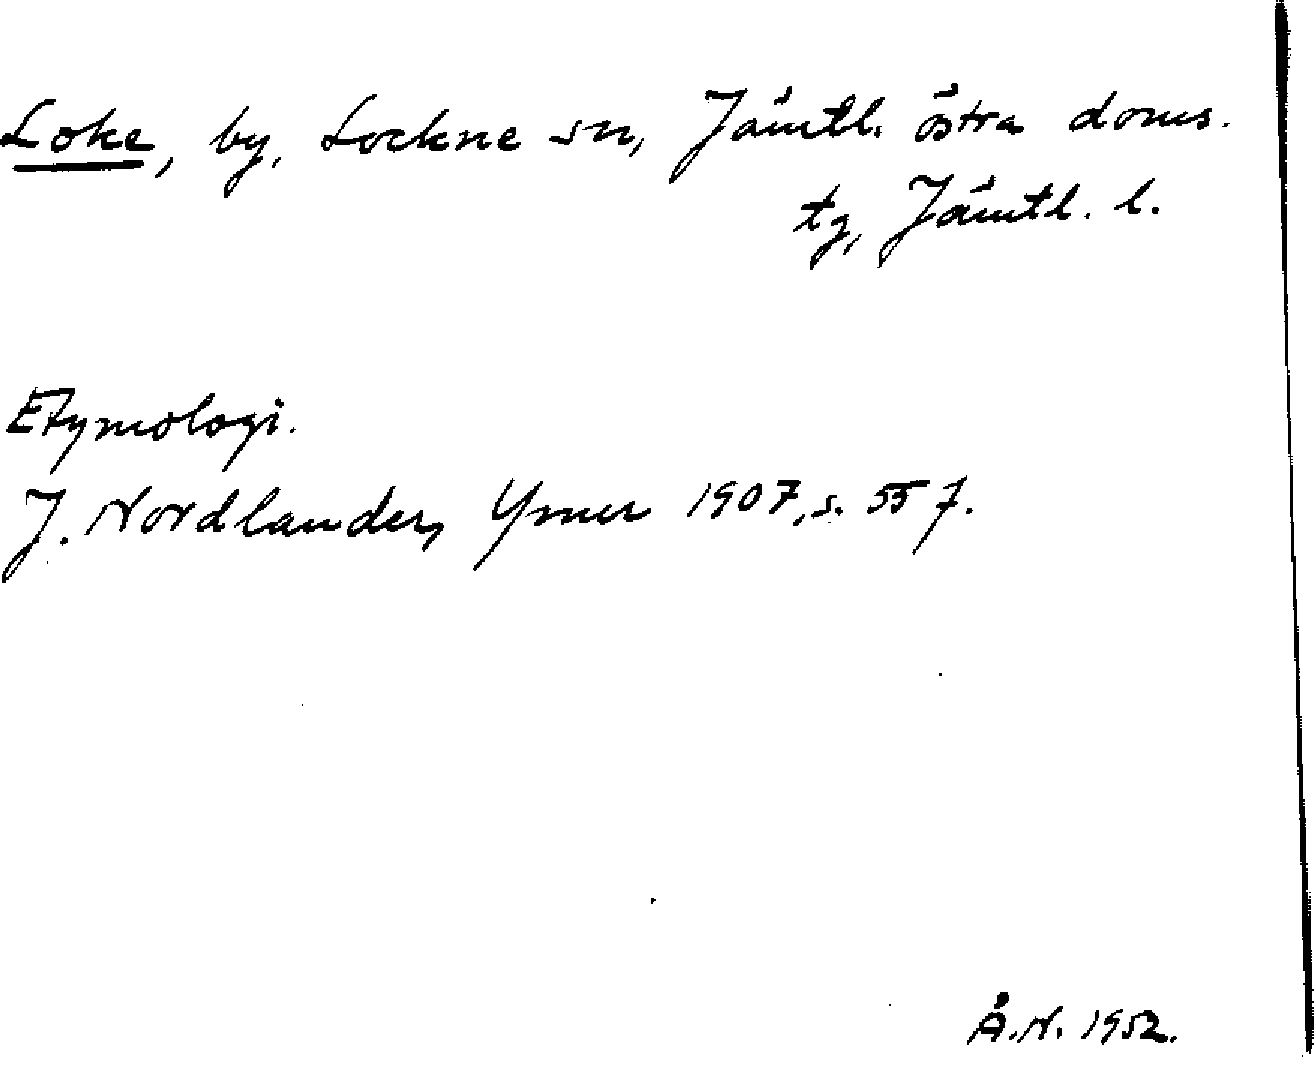 Loke, by, Lockne sn, Jämtl. östra doms.
tg, Jämtl. l.
Etymologi.
J. Nordlander, Ymer 1907, s. 55 f.
Å.N. 1952.